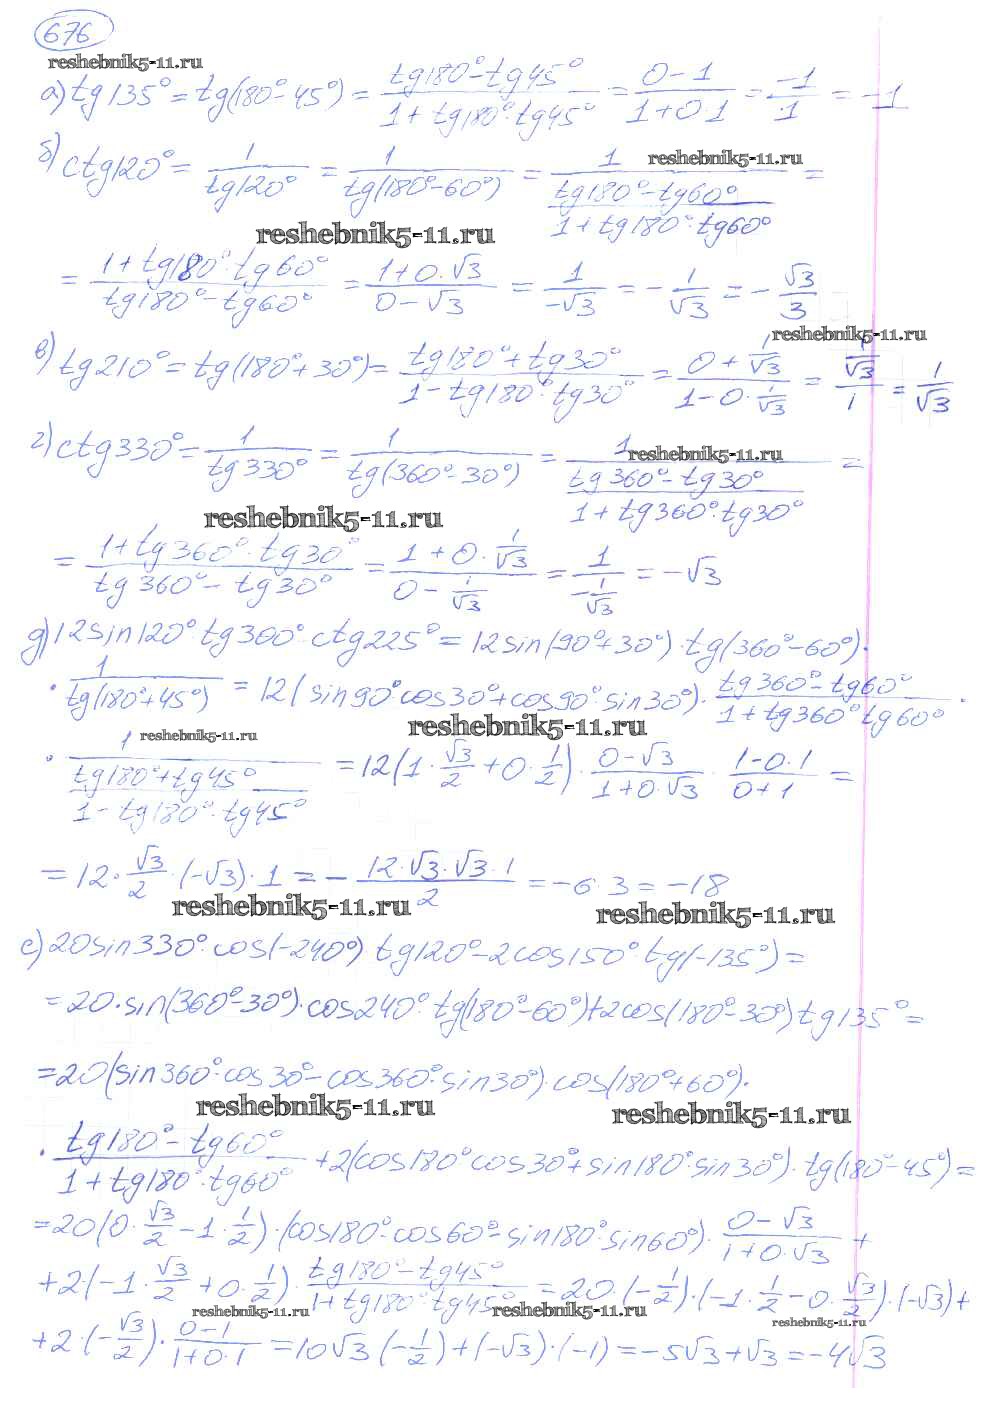 676
reshebnik5-11.ru
а) tg135° = tg(180° - 45°) = (tg180° - tg45°)/(1 + tg180°·tg45°) = (0 - 1)/(1 + 0·1) = -1/1 = -1
б) ctg120° = 1/tg120° = 1/tg(180° - 60°) = 1/((tg180° - tg60°)/(1 + tg180°·tg60°)) =
reshebnik5-11.ru
reshebnik5-11.ru
= (1 + tg180°·tg60°)/(tg180° - tg60°) = (1 + 0·√3)/(0 - √3) = 1/-√3 = -1/√3 = -√3/3
reshebnik5-11.ru
в) tg210° = tg(180° + 30°) = (tg180° + tg30°)/(1 - tg180°·tg30°) = (0 + 1/√3)/(1 - 0·1/√3) = (1/√3)/1 = 1/√3
г) ctg330° = 1/tg330° = 1/tg(360° - 30°) = 1/((tg360° - tg30°)/(1 + tg360°·tg30°)) =
reshebnik5-11.ru
reshebnik5-11.ru
= (1 + tg360°·tg30°)/(tg360° - tg30°) = (1 + 0·1/√3)/(0 - 1/√3) = 1/(-1/√3) = -√3
д) 12sin120° tg300°·ctg225° = 12sin(90° + 30°)·tg(360° - 60°)·
·1/tg(180° + 45°) = 12(sin90°cos30° + cos90°·sin30°)·(tg360° - tg60°)/(1 + tg360°tg60°)·
reshebnik5-11.ru
reshebnik5-11.ru
·1/((tg180° + tg45°)/(1 - tg180°·tg45°)) = 12(1·√3/2 + 0·1/2)·(0 - √3)/(1 + 0·√3)·(1 - 0·1)/(0 + 1) =
= 12·√3/2·(-√3)·1 = -(12·√3·√3·1)/2 = -6·3 = -18
reshebnik5-11.ru
reshebnik5-11.ru
е) 20sin330°·cos(-240°) tg120° - 2cos150°·tg(-135°) =
= 20·sin(360° - 30°)·cos240°·tg(180° - 60°) + 2cos(180° - 30°) tg135° =
= 20(sin360°·cos30° - cos360°·sin30°)·cos(180° + 60°)·
reshebnik5-11.ru
reshebnik5-11.ru
·(tg180° - tg60°)/(1 + tg180°·tg60°) + 2(cos180°cos30° + sin180°·sin30°)·tg(180° - 45°) =
= 20(0·√3/2 - 1·1/2)·(cos180°·cos60° - sin180°·sin60°)·(0 - √3)/(1 + 0·√3) +
+ 2·(-1·√3/2 + 0·1/2)·(tg180° - tg45°)/(1 + tg180° tg45°) = 20·(-1/2)·(-1·1/2 - 0·√3/2)·(-√3) +
reshebnik5-11.ru
reshebnik5-11.ru
reshebnik5-11.ru
+ 2·(-√3/2)·(0 - 1)/(1 + 0·1) = 10√3(-1/2) + (-√3)·(-1) = -5√3 + √3 = -4√3